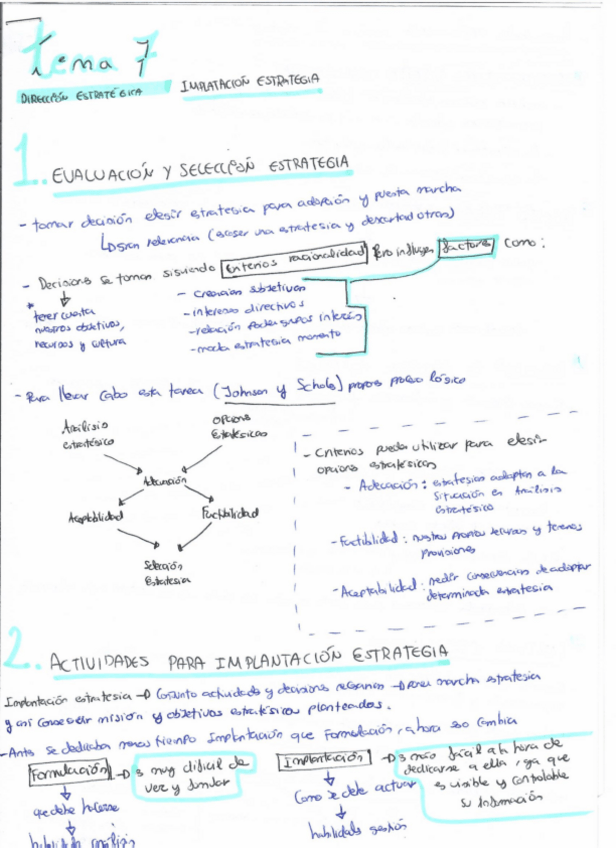 Tema 7
DIRECCIÓN ESTRATÉGICA IMPLATACIÓN ESTRATEGIA
1.. EVALUACIÓN Y SELECCIÓN ESTRATEGIA
- tomar decisión elegir estrategia para adopción y puesta marcha
gran relevancia (escoger una estrategia y descartad otras)
- Decisions se toman siguiendo criterios racionalidad pero influyen factores como:
* tener cuenta
nuestros objetivos,
recursos y cultura
- creencias subjetivas
- intereses directivos
- relación poder grupos interés
- moda estrategia momento
- Para llevar cabo esta tarea (Johnson y Schols) propone proceso lógico
Análisis
estratégico
opcions
Estratégicas
Adecuación
Aceptabilidad
Factibilidad
Selección
Estrategia
- Criterios pueda utilizar para elegir
opcions estratégicas
- Adecuación: estrategias adaptan a la
situación en Análisis
estratégico
- Factibilidad: nuestros propios recursos y terceros
provisiones
- Aceptabilidad: medir consecuencias de adoptar
determinada estrategia
2.. ACTIVIDADES PARA IMPLANTACIÓN ESTRATEGIA
Implantación estrategia → Conjunto actividades y decisions necesarias → poner marcha estrategia
y así conseguir misión y objetivos estratégicos planteados.
- Antes se dedicaba menos tiempo Implantación que Formulación, ahora eso cambia
Formulación → s muy difícil de
ver y
que debe hacerse
habilidades análisis
Implantación → s más fácil a la hora de
dedicarse a ella, ya que
es visible y controlable
su información
Como se debe actuar
habilidads gestión